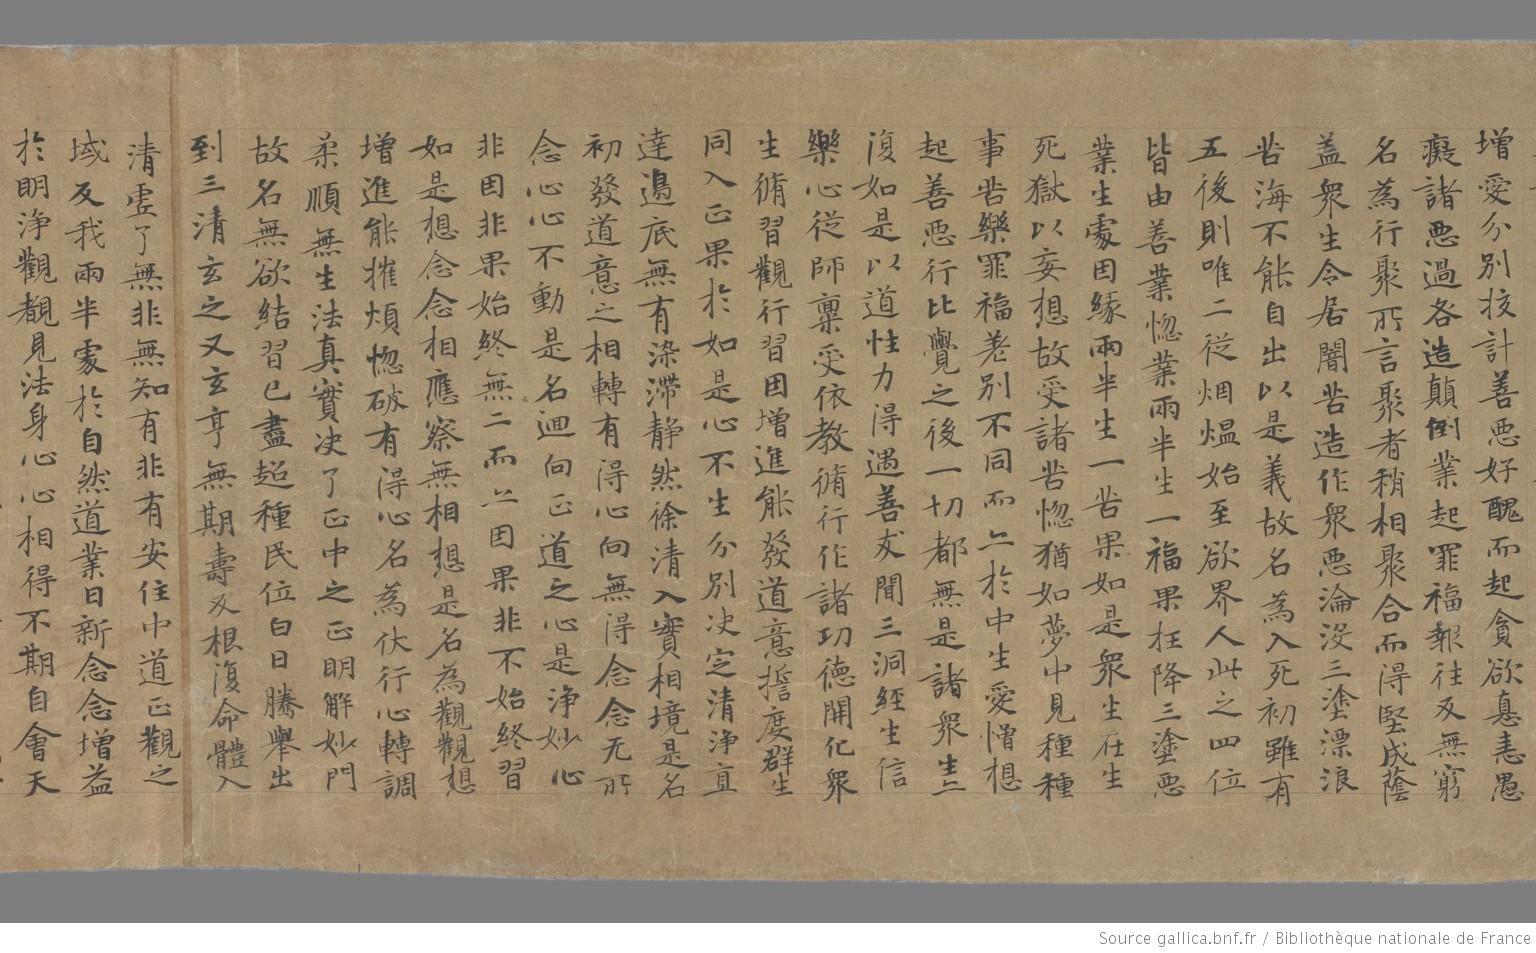 增愛分别挍計善惡好醜而起貪欲恚恚愚
癡諸惡過各造顛倒業起罪福報往及無窮
名為行聚所言聚者稍相聚合而得堅成蔭
盖衆生令居闇苦造作衆惡淪没三塗漂浪
苦海不能自出以是義故名為入死初雖有
五後則唯二從烟煴始至欲界人此之四位
皆由善業惚業兩半生一福果狂降三塗惡
業生處因緣兩半生一苦果如是衆生在生
死獄以妄想故受諸苦惚猶如夢中見種種
事苦樂罪福差别不同而亠於中生愛憎想
起善惡行比覺之後一切都無是諸衆生亠
復如是以道性力得遇善友聞三洞經生信
樂心從師稟受依教脩行作諸功德開化衆
生脩習觀行習因增進能發道意擔度群生
同入正果於如是心不生分别决定清淨直
達邉底無有染滯静然徐清入實相境是名
初發道意之相轉有得心向無得念念无所
念心心不動是名迴向正道之心是浄妙心
非因非果始終無二而亠因果非不始終習
如是想念念相應察無相想是名為觀觀想
增進能摧煩惚破有得心名為伏行心轉調
柔順無生法真實决了正中之正明解妙門
故名無欲結習已盡超種民位白日騰舉出
到三清玄之又玄享無期壽及根復命體入
清虗了無非無知有非有安住中道正觀之
域反我兩半處於自然道業日新念念增益
於明浄觀覩見法身心心相得不期自會天
Source gallica.bnf.fr / Bibliothèque nationale de France